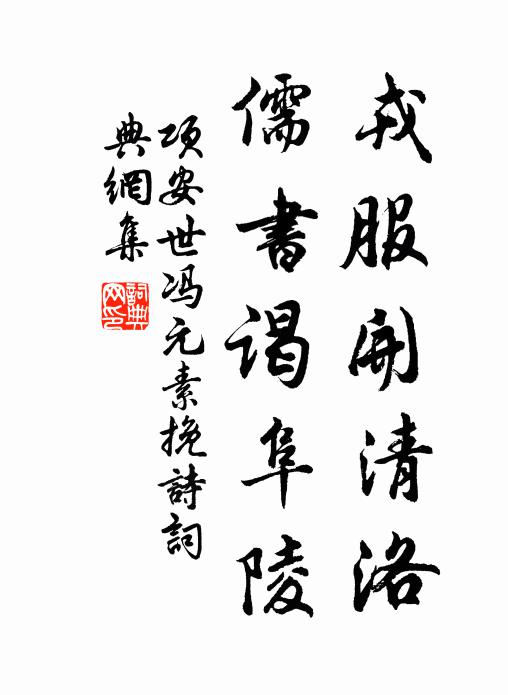 戎服開清洛
儒書謁阜陵
項安世馮元素挽詩詞
典網集
詞典網印